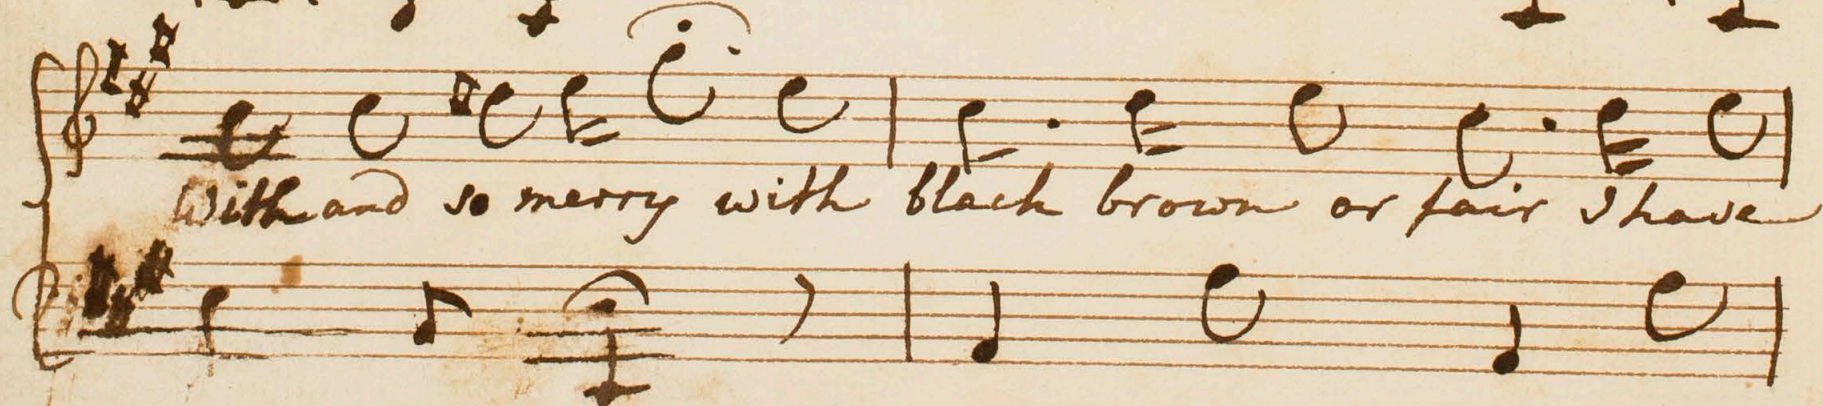 With and so merry with black brown or fair I have